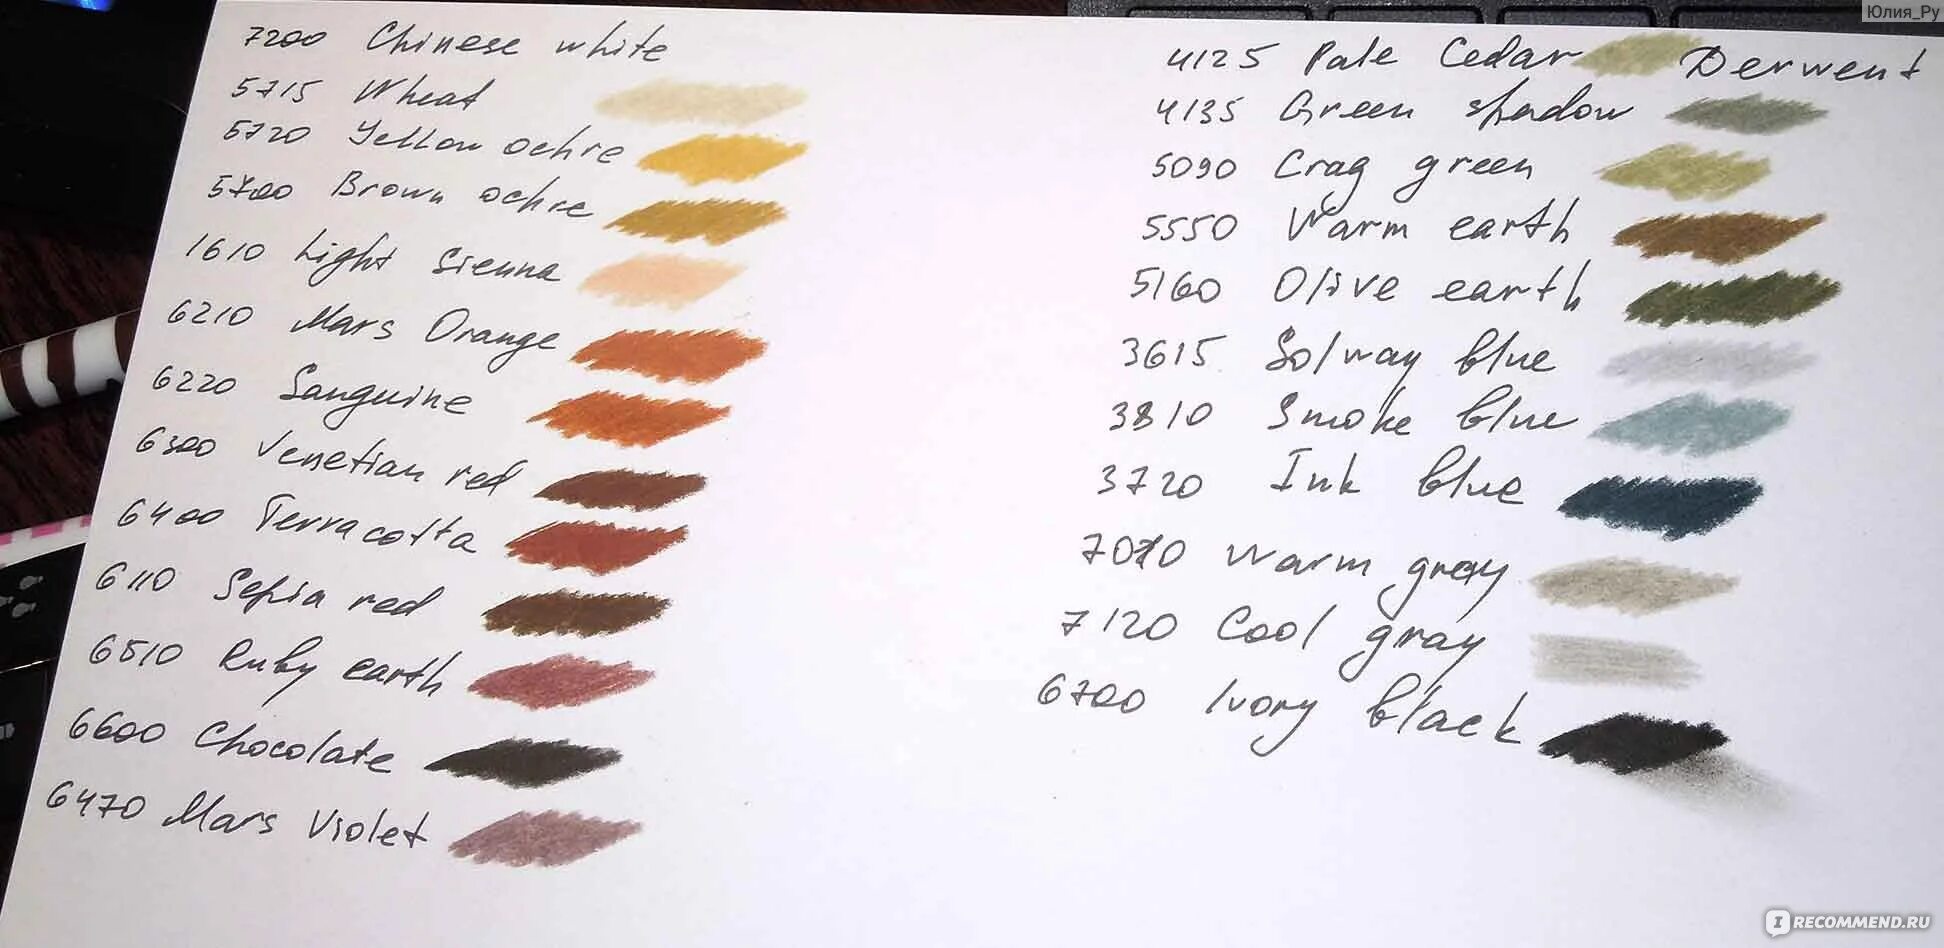 Юлия_Ру
7200 Chinese white
5715 Wheat
5720 Yellow ochre
5700 Brown ochre
1610 Light Sienna
6210 Mars Orange
6220 Sanguine
6300 Venetian red
6400 Terracotta
6110 Sepia red
6510 Ruby earth
6600 Chocolate
6470 Mars Violet
4125 Pale Cedar Derwent
4135 Green shadow
5090 Crag green
5550 Warm earth
5160 Olive earth
3615 Solway blue
3810 Smoke blue
3720 Ink blue
7010 Warm gray
7120 Cool gray
6700 Ivory black
IRECOMMEND.RU